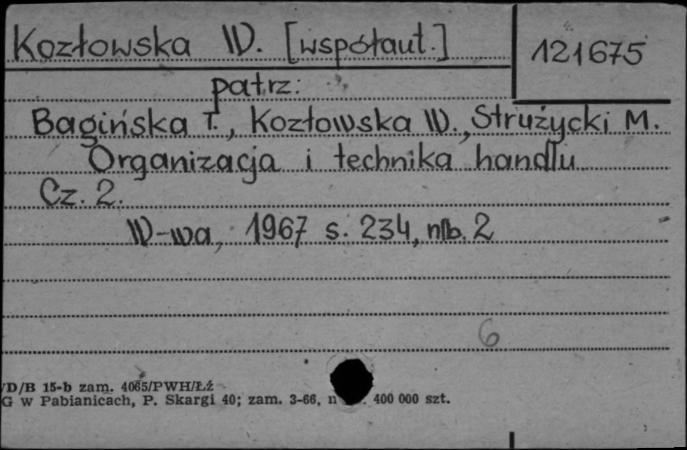 Kozłowska W. [współaut.]
121675
patrz:
Bagińska T., Kozłowska W., Strużycki M.
Organizacja i technika handlu
Cz. 2.
W-wa, 1967 s. 234, nlb. 2
6
/D/B 15-b zam. 4065/PWH/Łź
G w Pabianicach, P. Skargi 40; zam. 3-66, n 400 000 szt.